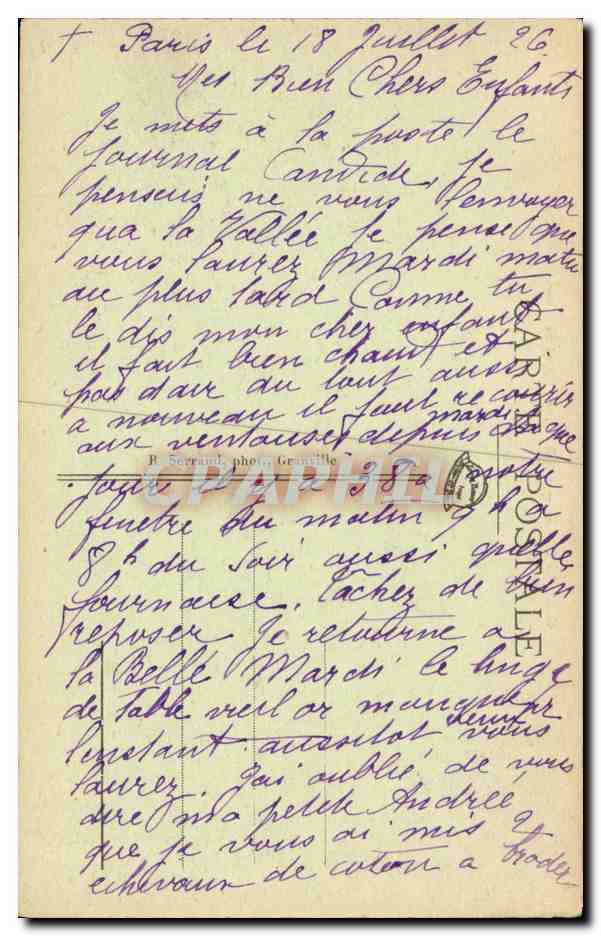 + Paris le 18 Juillet 26
Mes Bien Chers Enfants
Je mets à la poste le
journal Candide, je
pensais ne vous l'envoyer
qua la Vallée Je pense que
vous laurez Mardi matin
au plus tard Comme tu
le dis mon cher enfant
il fait bien chaud et
pas d'air du tout aussi
a nouveau il faut recourir
aux ventouses, depuis mardi que
R. Serraud, phot., Granville
jour il y a 38° a notre
fenetre du matin 9h a
8h du soir aussi quelle
fournaise. Tâchez de bien
reposer Je retourne a
la Belle Mardi le linge
de Table vieil or manque pr
l'instant aussitot venu vous
laurez. J'ai oublié de vous
dire ma petite Andrée,
que je vous ai mis 2
echevaux de coton a broder
CARTE POSTALE
CPAPHIL